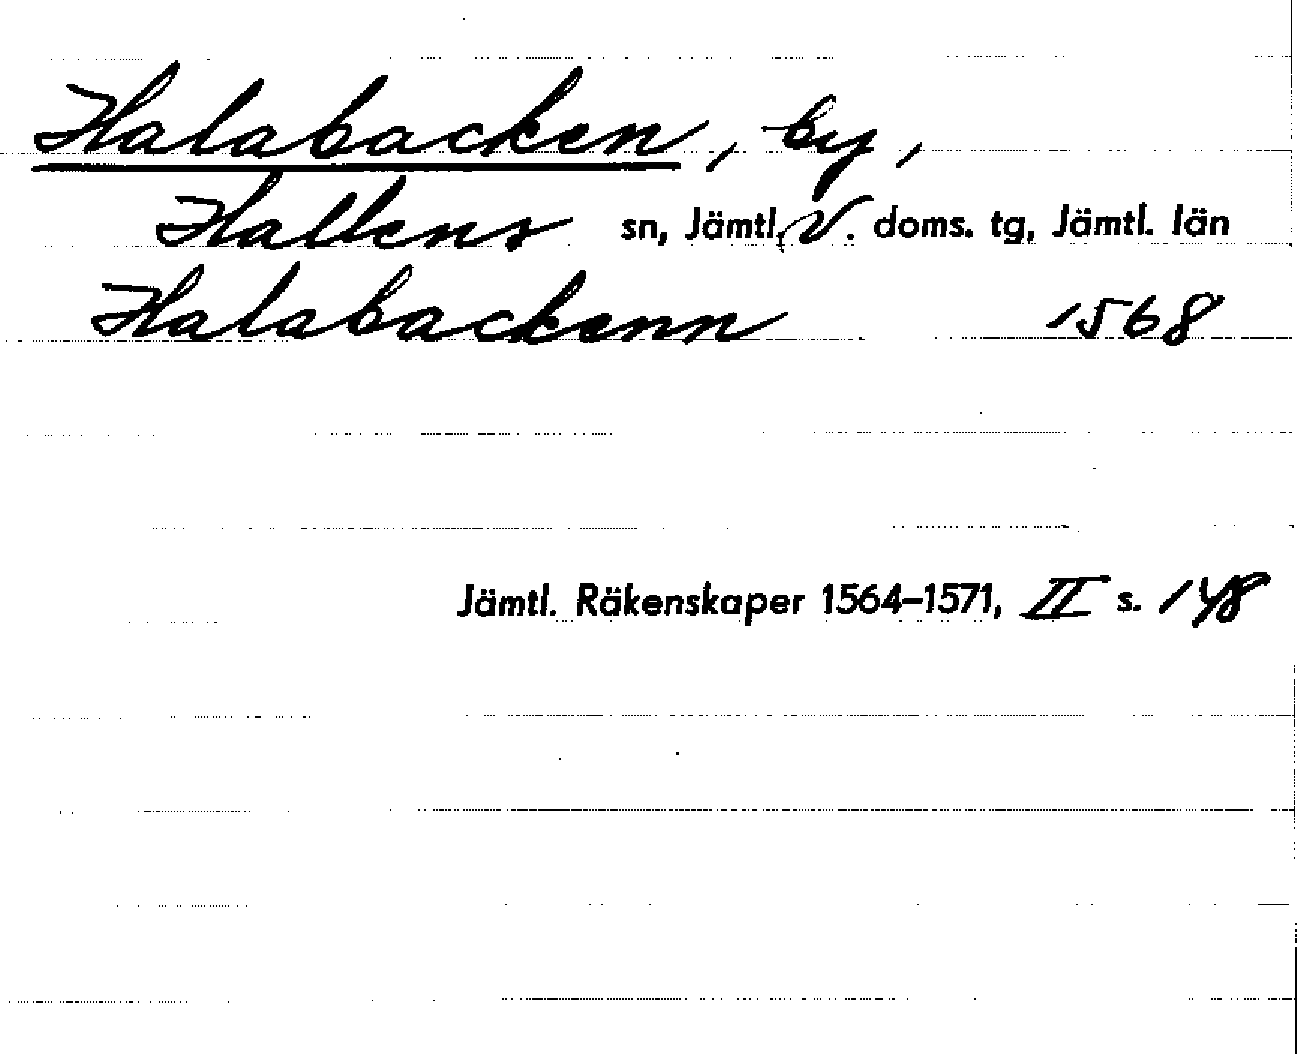 Halabacken, by,
Hallens sn, Jämtl. V. doms. tg, Jämtl. län
Halabackenn 1568
Jämtl. Räkenskaper 1564–1571, II s. 148